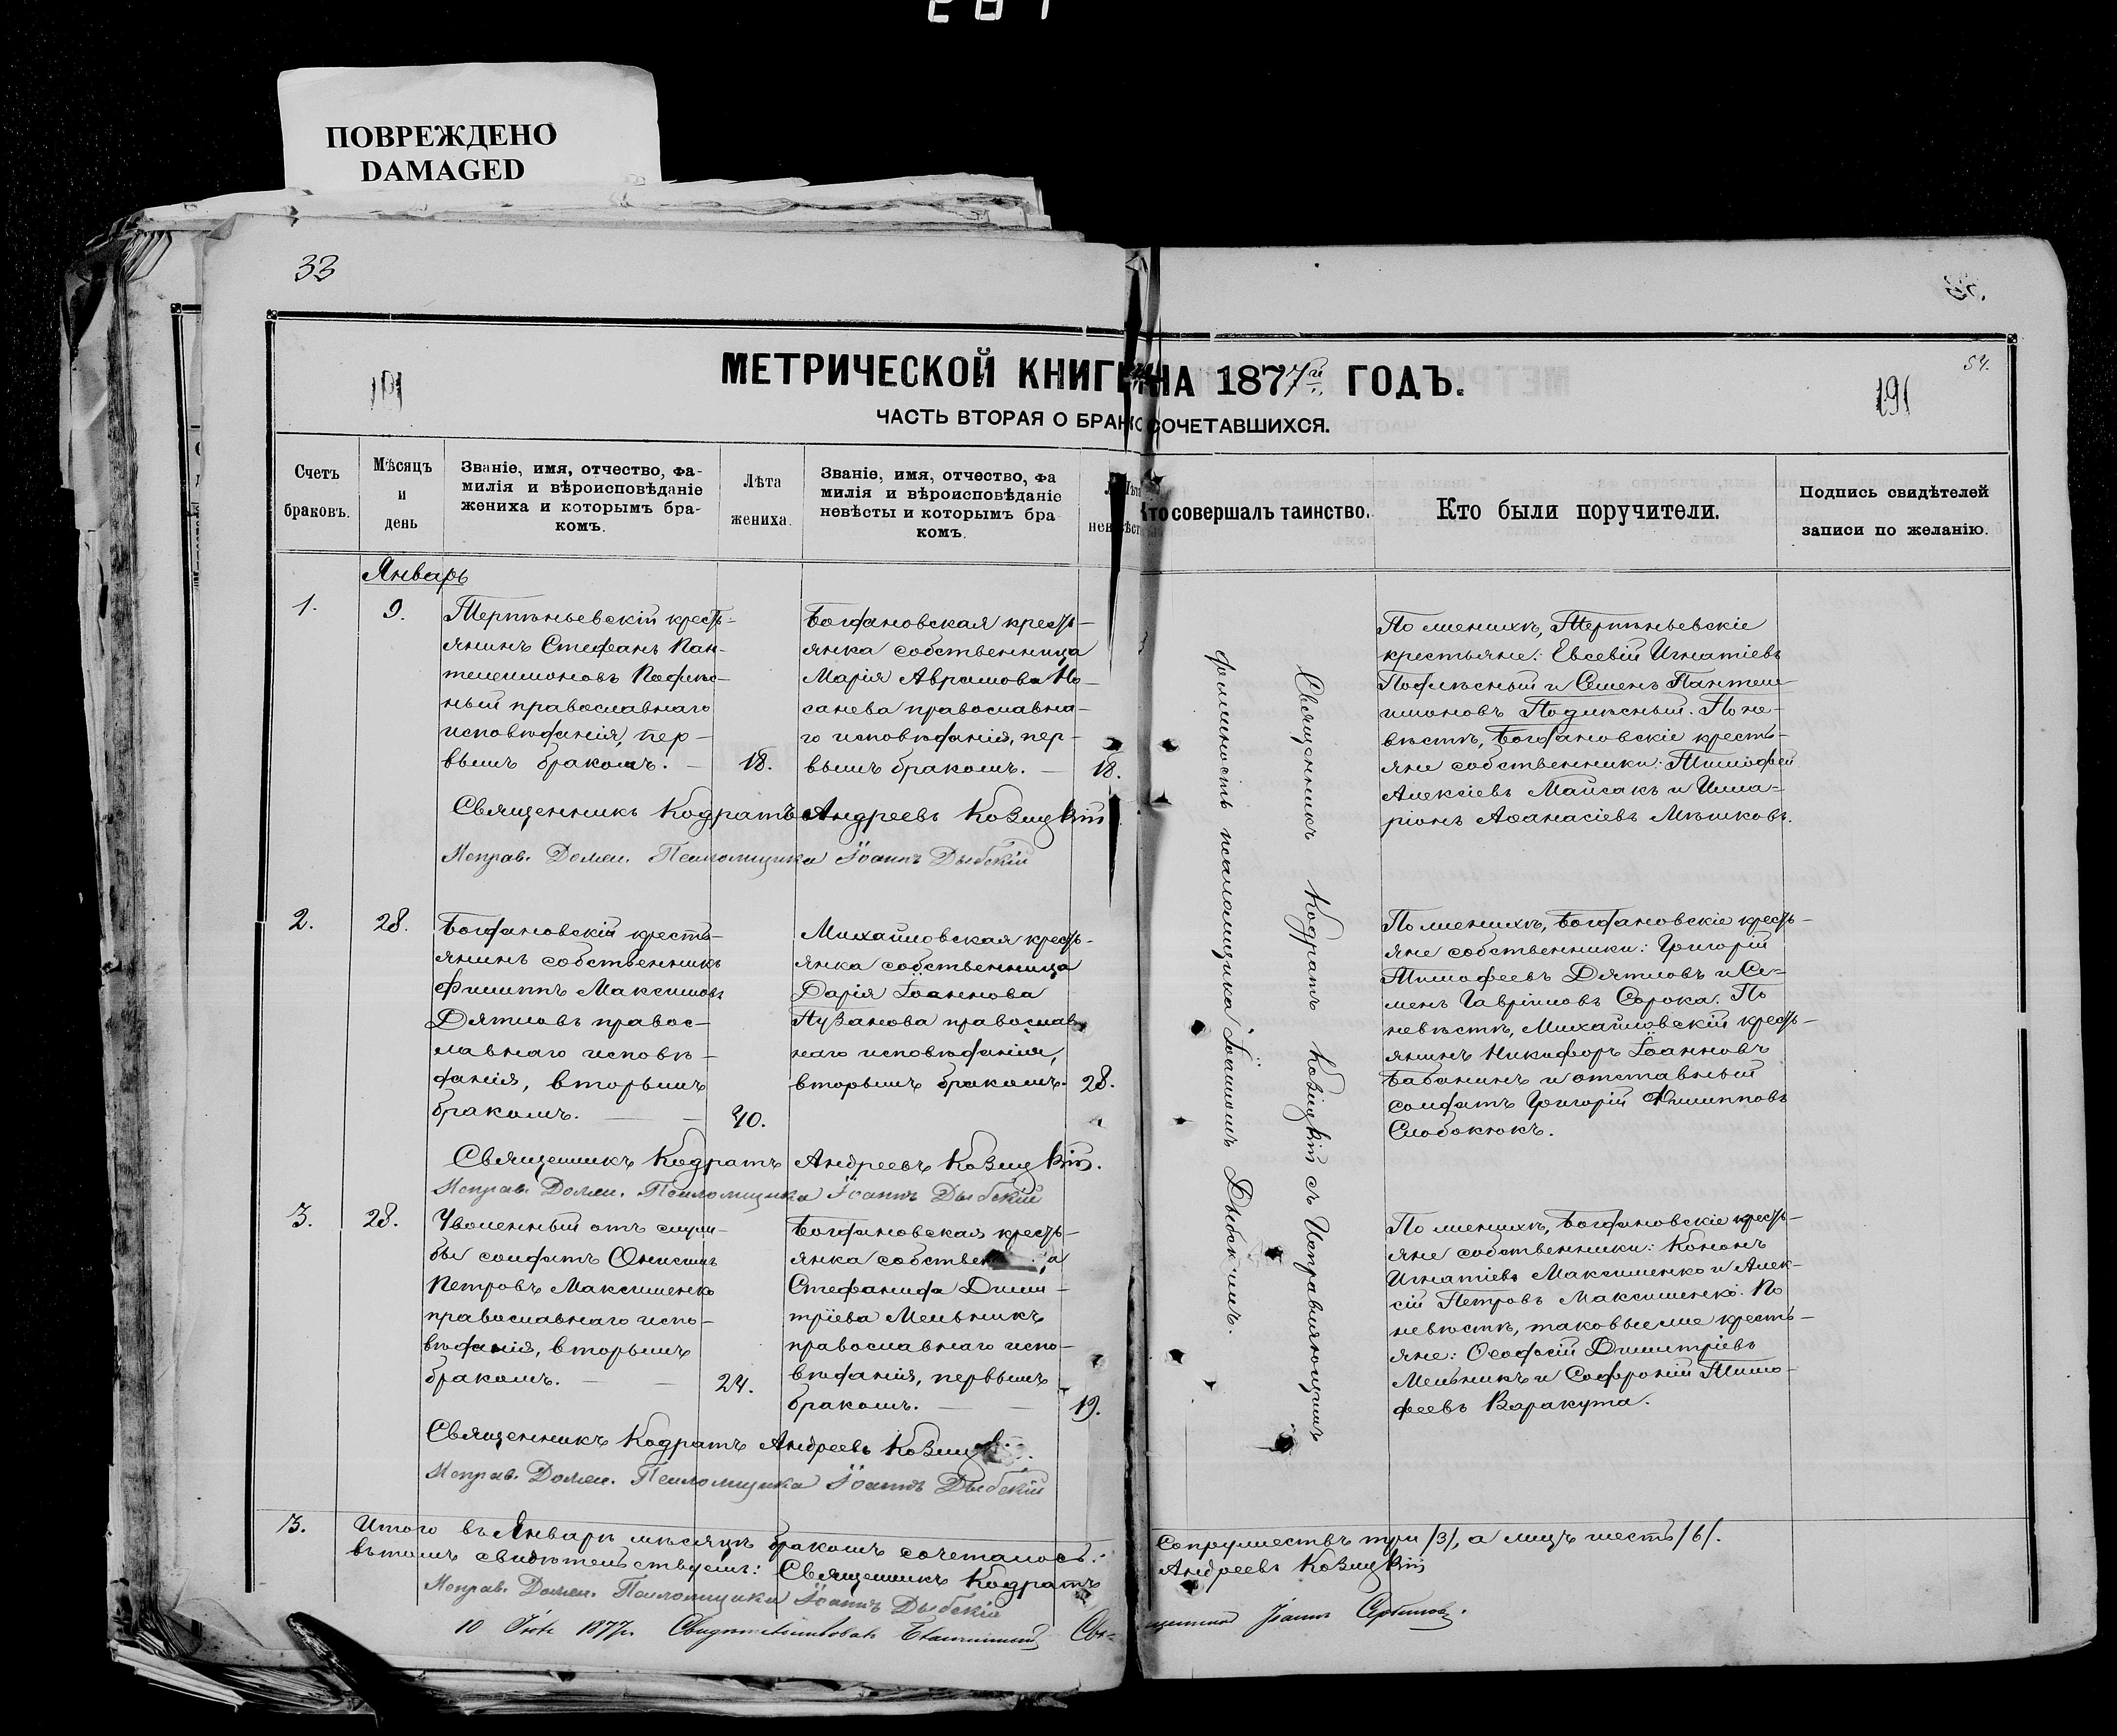 ПОВРЕЖДЕНО
DAMAGED
33
54.
191
191
МЕТРИЧЕСКОЙ КНИГИ НА 1877й ГОДЪ.
ЧАСТЬ ВТОРАЯ О БРАКОСОЧЕТАВШИХСЯ.
Счетъ
браковъ.
Мѣсяцъ
и
день
Званіе, имя, отчество, фа-
милія и вѣроисповѣданіе
жениха и которымъ бра-
комъ.
Лѣта
жениха.
Званіе, имя, отчество, фа
милія и вѣроисповѣданіе
невѣсты и которымъ бра
комъ.
Лѣта
невѣсты
Кто совершалъ таинство.
Кто были поручители.
Подпись свидѣтелей
записи по желанію.
Январь
1.
9.
Терпѣньевскій кресть-
янинъ Стефанъ Пан-
телеимоновъ Подлѣс-
ный православнаго
исповѣданія, пер-
вымъ бракомъ. —
18.
Богдановская кресть-
янка собственница
Марія Аврамова Но-
санева православна-
го исповѣданія, пер-
вымъ бракомъ. —
18.
По женихѣ, Терпѣньевскіе
крестьяне: Евсевій Игнатіевъ
Подлѣсный и Семенъ Пантеле-
имоновъ Подлѣсный. По не-
вѣстѣ, Богдановскіе кресть-
яне собственники: Тимофей
Алексіевъ Майсакъ и Илла-
ріонъ Аѳанасіевъ Мѣшковъ.
Священникъ Кодратъ Андреевъ Козицкій
Исправ. Должн. Псаломщика Іоаннъ Дыбскій
2.
28.
Богдановскій кресть-
янинъ собственникъ
Филиппъ Максимовъ
Дятловъ правос-
лавнаго исповѣ-
данія, вторымъ
бракомъ. — —
40.
Михайловская кресть-
янка собственница
Дарія Іоаннова
Пузанова православ-
наго исповѣданія,
вторымъ бракомъ.
28.
По женихѣ, Богдановскіе кресть-
яне собственники: Григорій
Тимофеевъ Дятловъ и Се-
менъ Гавріиловъ Сорока. По
невѣстѣ, Михайловскій кресть-
янинъ Никифоръ Іоанновъ
Бабанинъ и отставный
солдатъ Григорій Филипповъ
Слобокюкъ.
Священникъ Кодратъ Андреевъ Козицкій.
Исправ. Должн. Псаломщика Іоаннъ Дыбскій
3.
28.
Уволенный отъ служ-
бы солдатъ Онисимъ
Петровъ Максименко
православнаго испо-
вѣданія, вторымъ
бракомъ. — —
24.
Богдановская кресть-
янка собственница
Стефанида Дими-
тріева Мельникъ
православнаго испо-
вѣданія, первымъ
бракомъ. — —
19.
По женихѣ, Богдановскіе кресть-
яне собственники: Кононъ
Игнатіевъ Максименко и Алек-
сій Петровъ Максименко. По
невѣстѣ, таковые же кресть-
яне: Ѳеодосій Димитріевъ
Мельникъ и Софроній Тимо-
феевъ Варакута.
Священникъ Кодратъ Андреевъ Козицкій.
Исправ. Должн. Псаломщика Іоаннъ Дыбскій
Священникъ Кодратъ Козицкій съ Исправляющимъ
должность псаломщика Іоанномъ Дыбскимъ.
3.
Итого въ Январѣ мѣсяцѣ бракомъ сочеталось: супружествъ три /3/, а лицъ шесть /6/.
въ томъ свидѣтельствуемъ: Священникъ Кодратъ Андреевъ Козицкій
Исправ. Должн. Псаломщика Іоаннъ Дыбскій
10 1877г. Свидѣтельствовалъ Благочинный Священникъ Іоаннъ